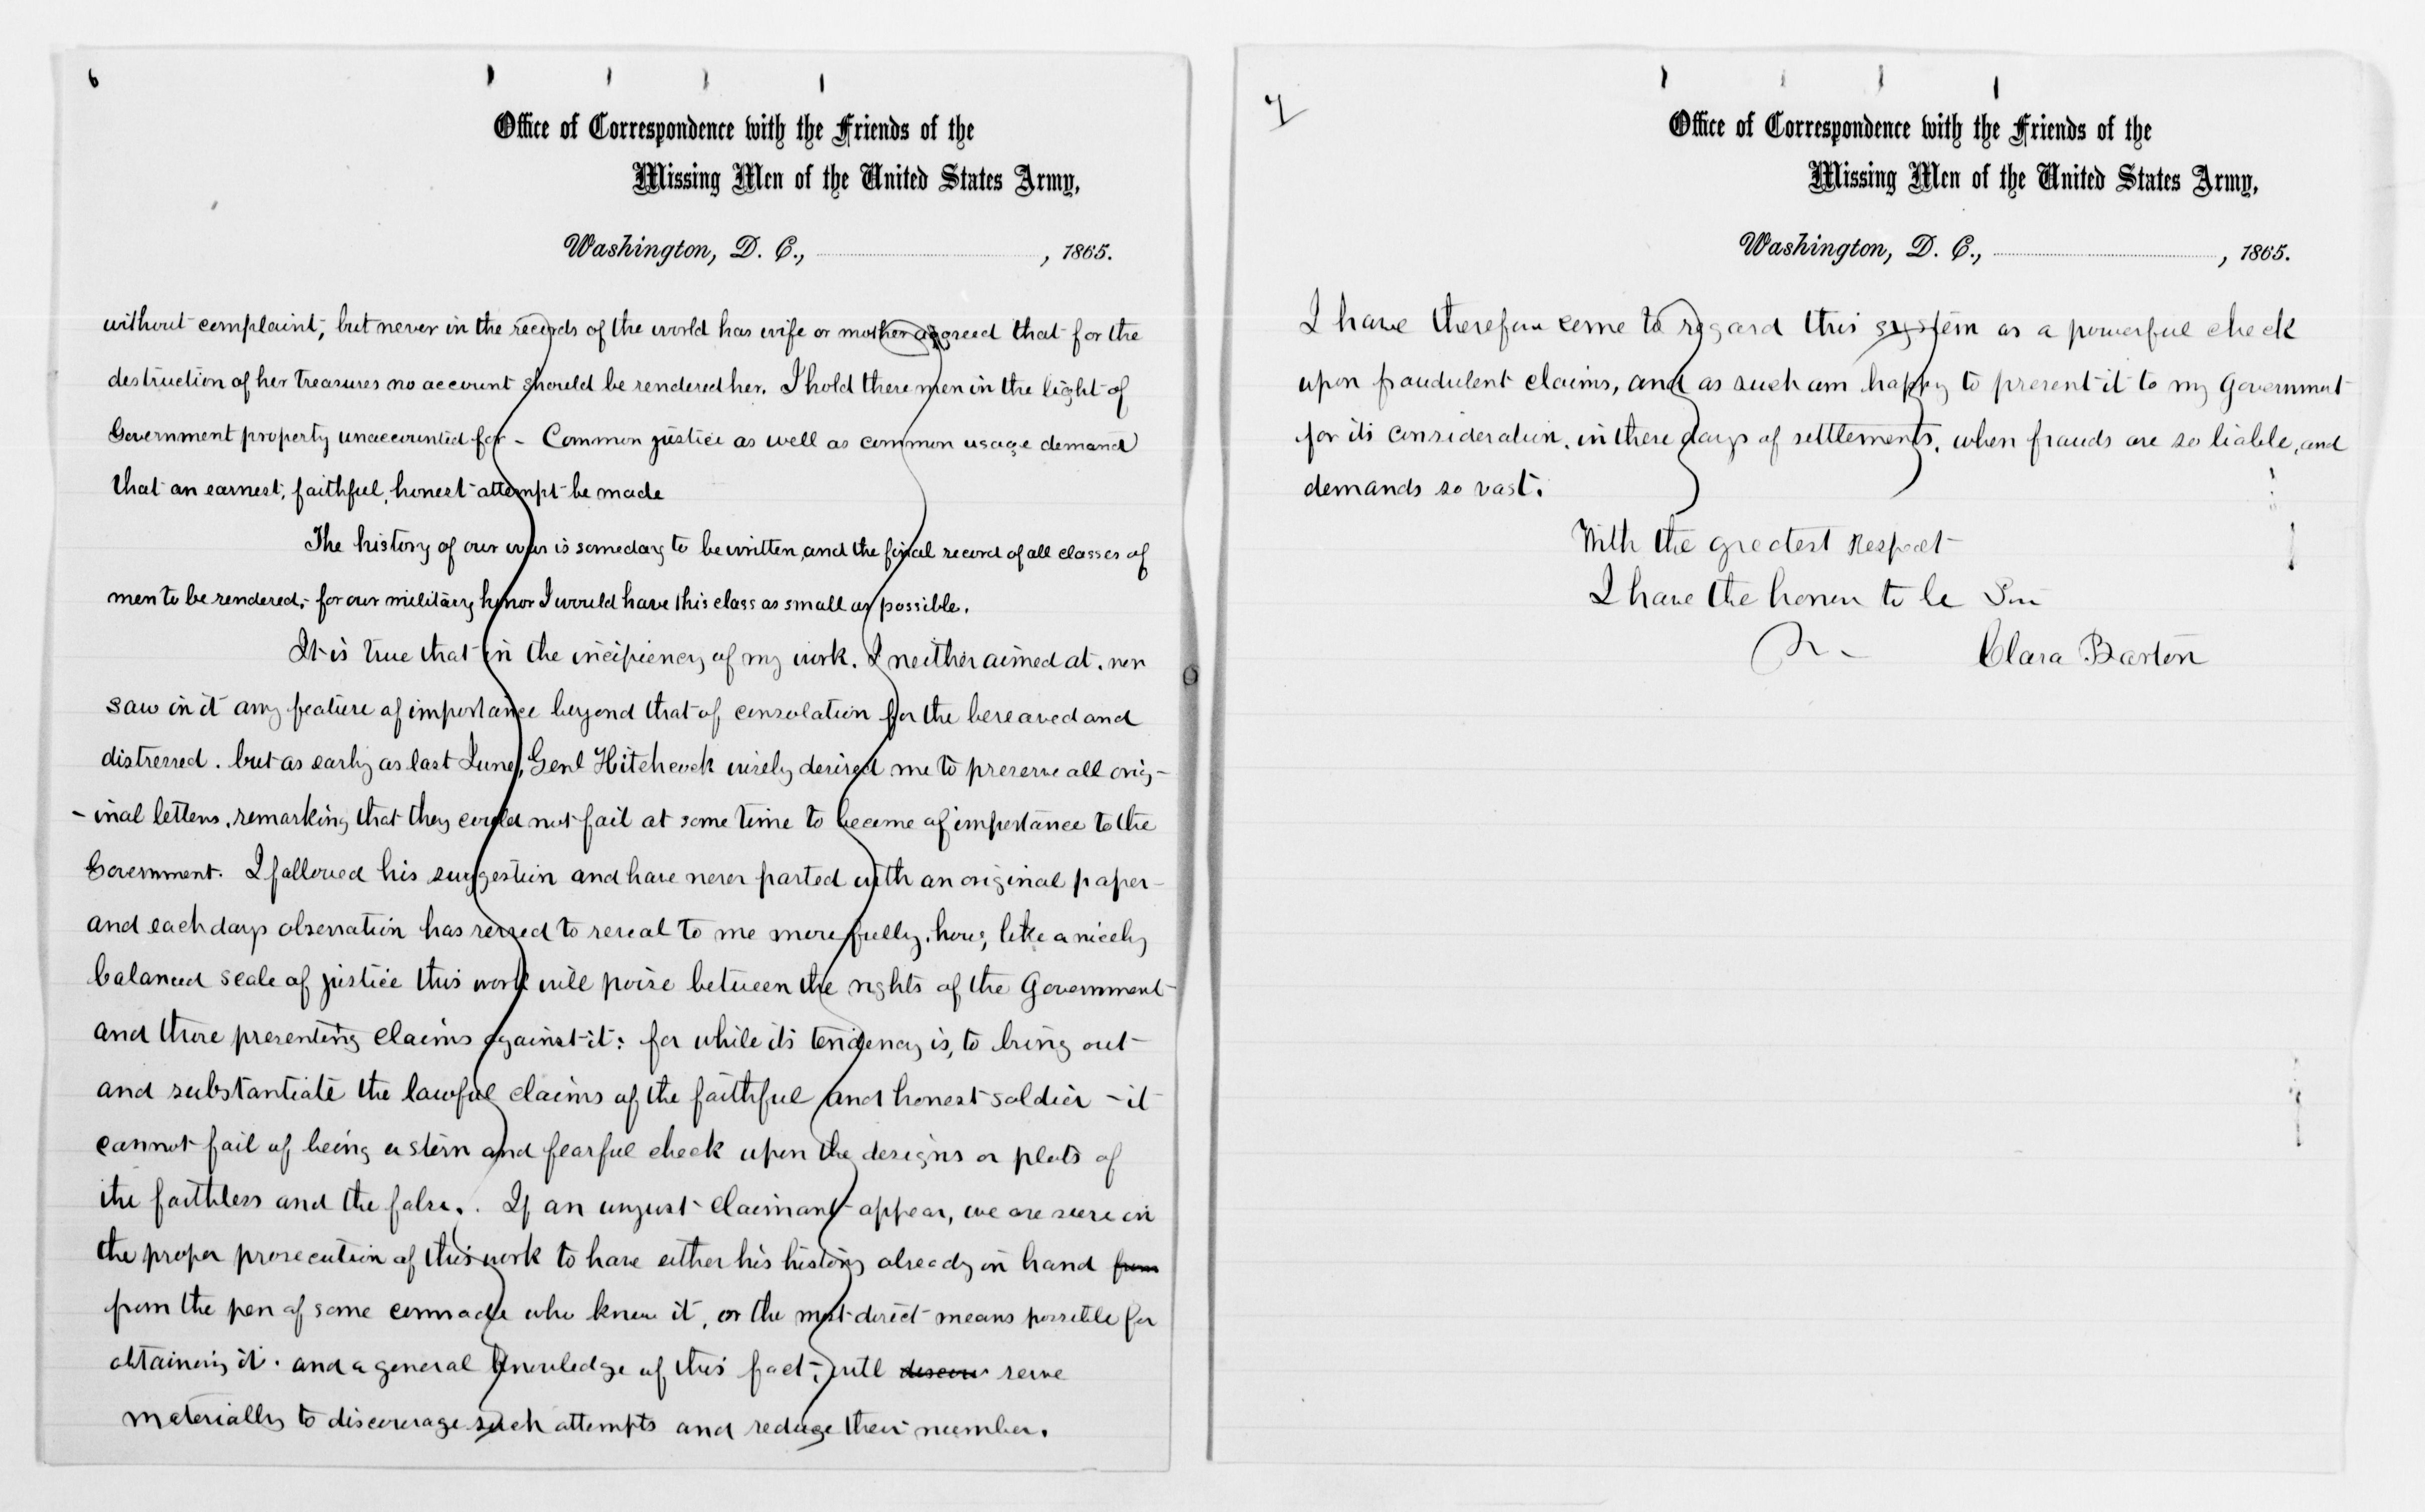 6
Office of Correspondence with the Friends of the
Missing Men of the United States Army,
Washington, D. C., , 1865.
without complaint, but never in the records of the world has wife or mother agreed that for the
destruction of her treasures no account should be rendered her. I hold these men in the light of
Government property unaccounted for - Common justice as well as common usage demand
that an earnest, faithful, honest attempt be made
The history of our war is someday to be written, and the final record of all classes of
men to be rendered,- for our military honor I would have this class as small as possible.
It is true that in the incipiency of my work. I neither aimed at. nor
saw in it any feature of importance beyond that of consolation for the bereaved and
distressed. but as early as last June, Genl Hitchcock wisely desired me to preserve all orig-
-inal letters. remarking that they could not fail at some time to become of importance to the
Government. I followed his suggestion and have never parted with an original paper-
and each days observation has served to reveal to me more fully. how, like a nicely
balanced scale of justice this work will poise between the rights of the Government
and those presenting claims against it: for while its tendency is, to bring out
and substantiate the lawful claims of the faithful and honest soldier - it
cannot fail of being a stern and fearful check upon the designs or plots of
the faithless and the false. . If an unjust claimant appear, we are sure in
the proper prosecution of this work to have either his history already in hand from
from the pen of some comrade who knew it, or the most direct means possible for
obtaining it. and a general knowledge of this fact, will discou serve
materially to discourage such attempts and reduce their number.
7
Office of Correspondence with the Friends of the
Missing Men of the United States Army,
Washington, D. C., , 1865.
I have therefore come to regard this system as a powerful check
upon fraudulent claims, and as such am happy to present it to my Government
for its consideration. in these days of settlements. when frauds are so liable, and
demands so vast.
With the greatest Respect
I have the honor to be Sir
Clara Barton